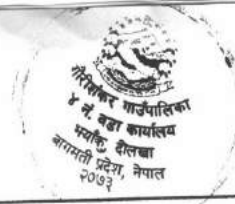 गौरीशंकर गाउँपालिका
४ नं. वडा कार्यालय
दोलखा
बागमती प्रदेश, नेपाल
२०७३